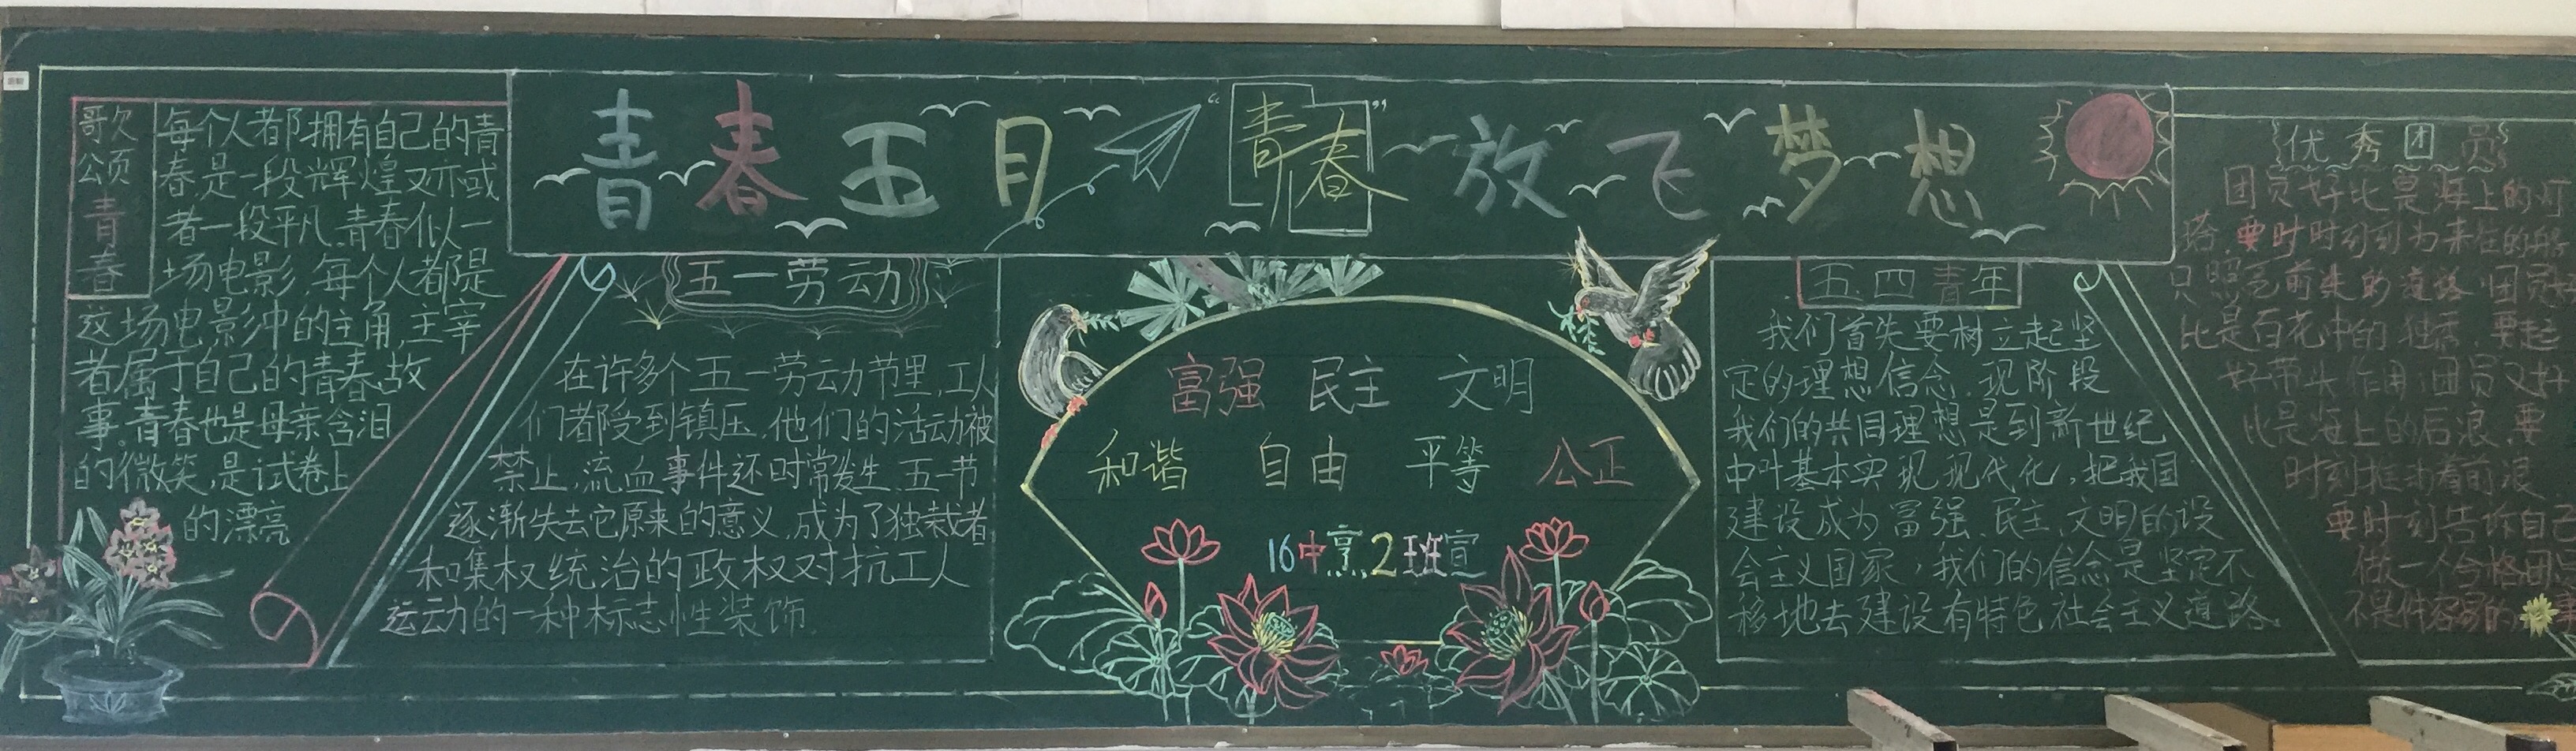 青春五月 “青春” 放飞梦想
歌颂青春
每个人都拥有自己的青
春是一段辉煌又亦或
者一段平凡.青春似一
场电影.每个人都是
这场电影中的主角,主宰
者属于自己的青春故
事.青春也是母亲含泪
的微笑,是试卷上
的漂亮
五一劳动
在许多个五一劳动节里,工人
们都受到镇压,他们的活动被
禁止,流血事件还时常发生.五一节
逐渐失去它原来的意义,成为了独裁者
和集权统治的政权对抗工人
运动的一种标志性装饰
富强 民主 文明
和谐 自由 平等 公正
16中烹2班宣
五.四青年
我们首先要树立起坚
定的理想信念.现阶段
我们的共同理想是到新世纪
中叶基本实现现代化,把我国
建设成为富强、民主、文明的设
会主义国家,我们的信念是坚定不
移地去建设有特色社会主义道路.
优秀团员
团员好比是海上的灯
塔,要时时刻刻为来往的船
只照亮前头的道路.团员好
比是百花中的独秀,要起
好带头作用.团员又好
比是海上的后浪,要
时刻推动着前浪
要时刻告诉自己
做一个合格团员
不是件容易的